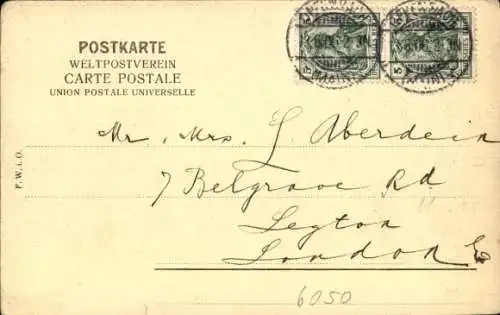 POSTKARTE
WELTPOSTVEREIN
CARTE POSTALE
UNION POSTALE UNIVERSELLE
Mr. Mrs. L Aberdein
7 Belgrave Rd.
Leyton
London E
F.W.i.O.
6050